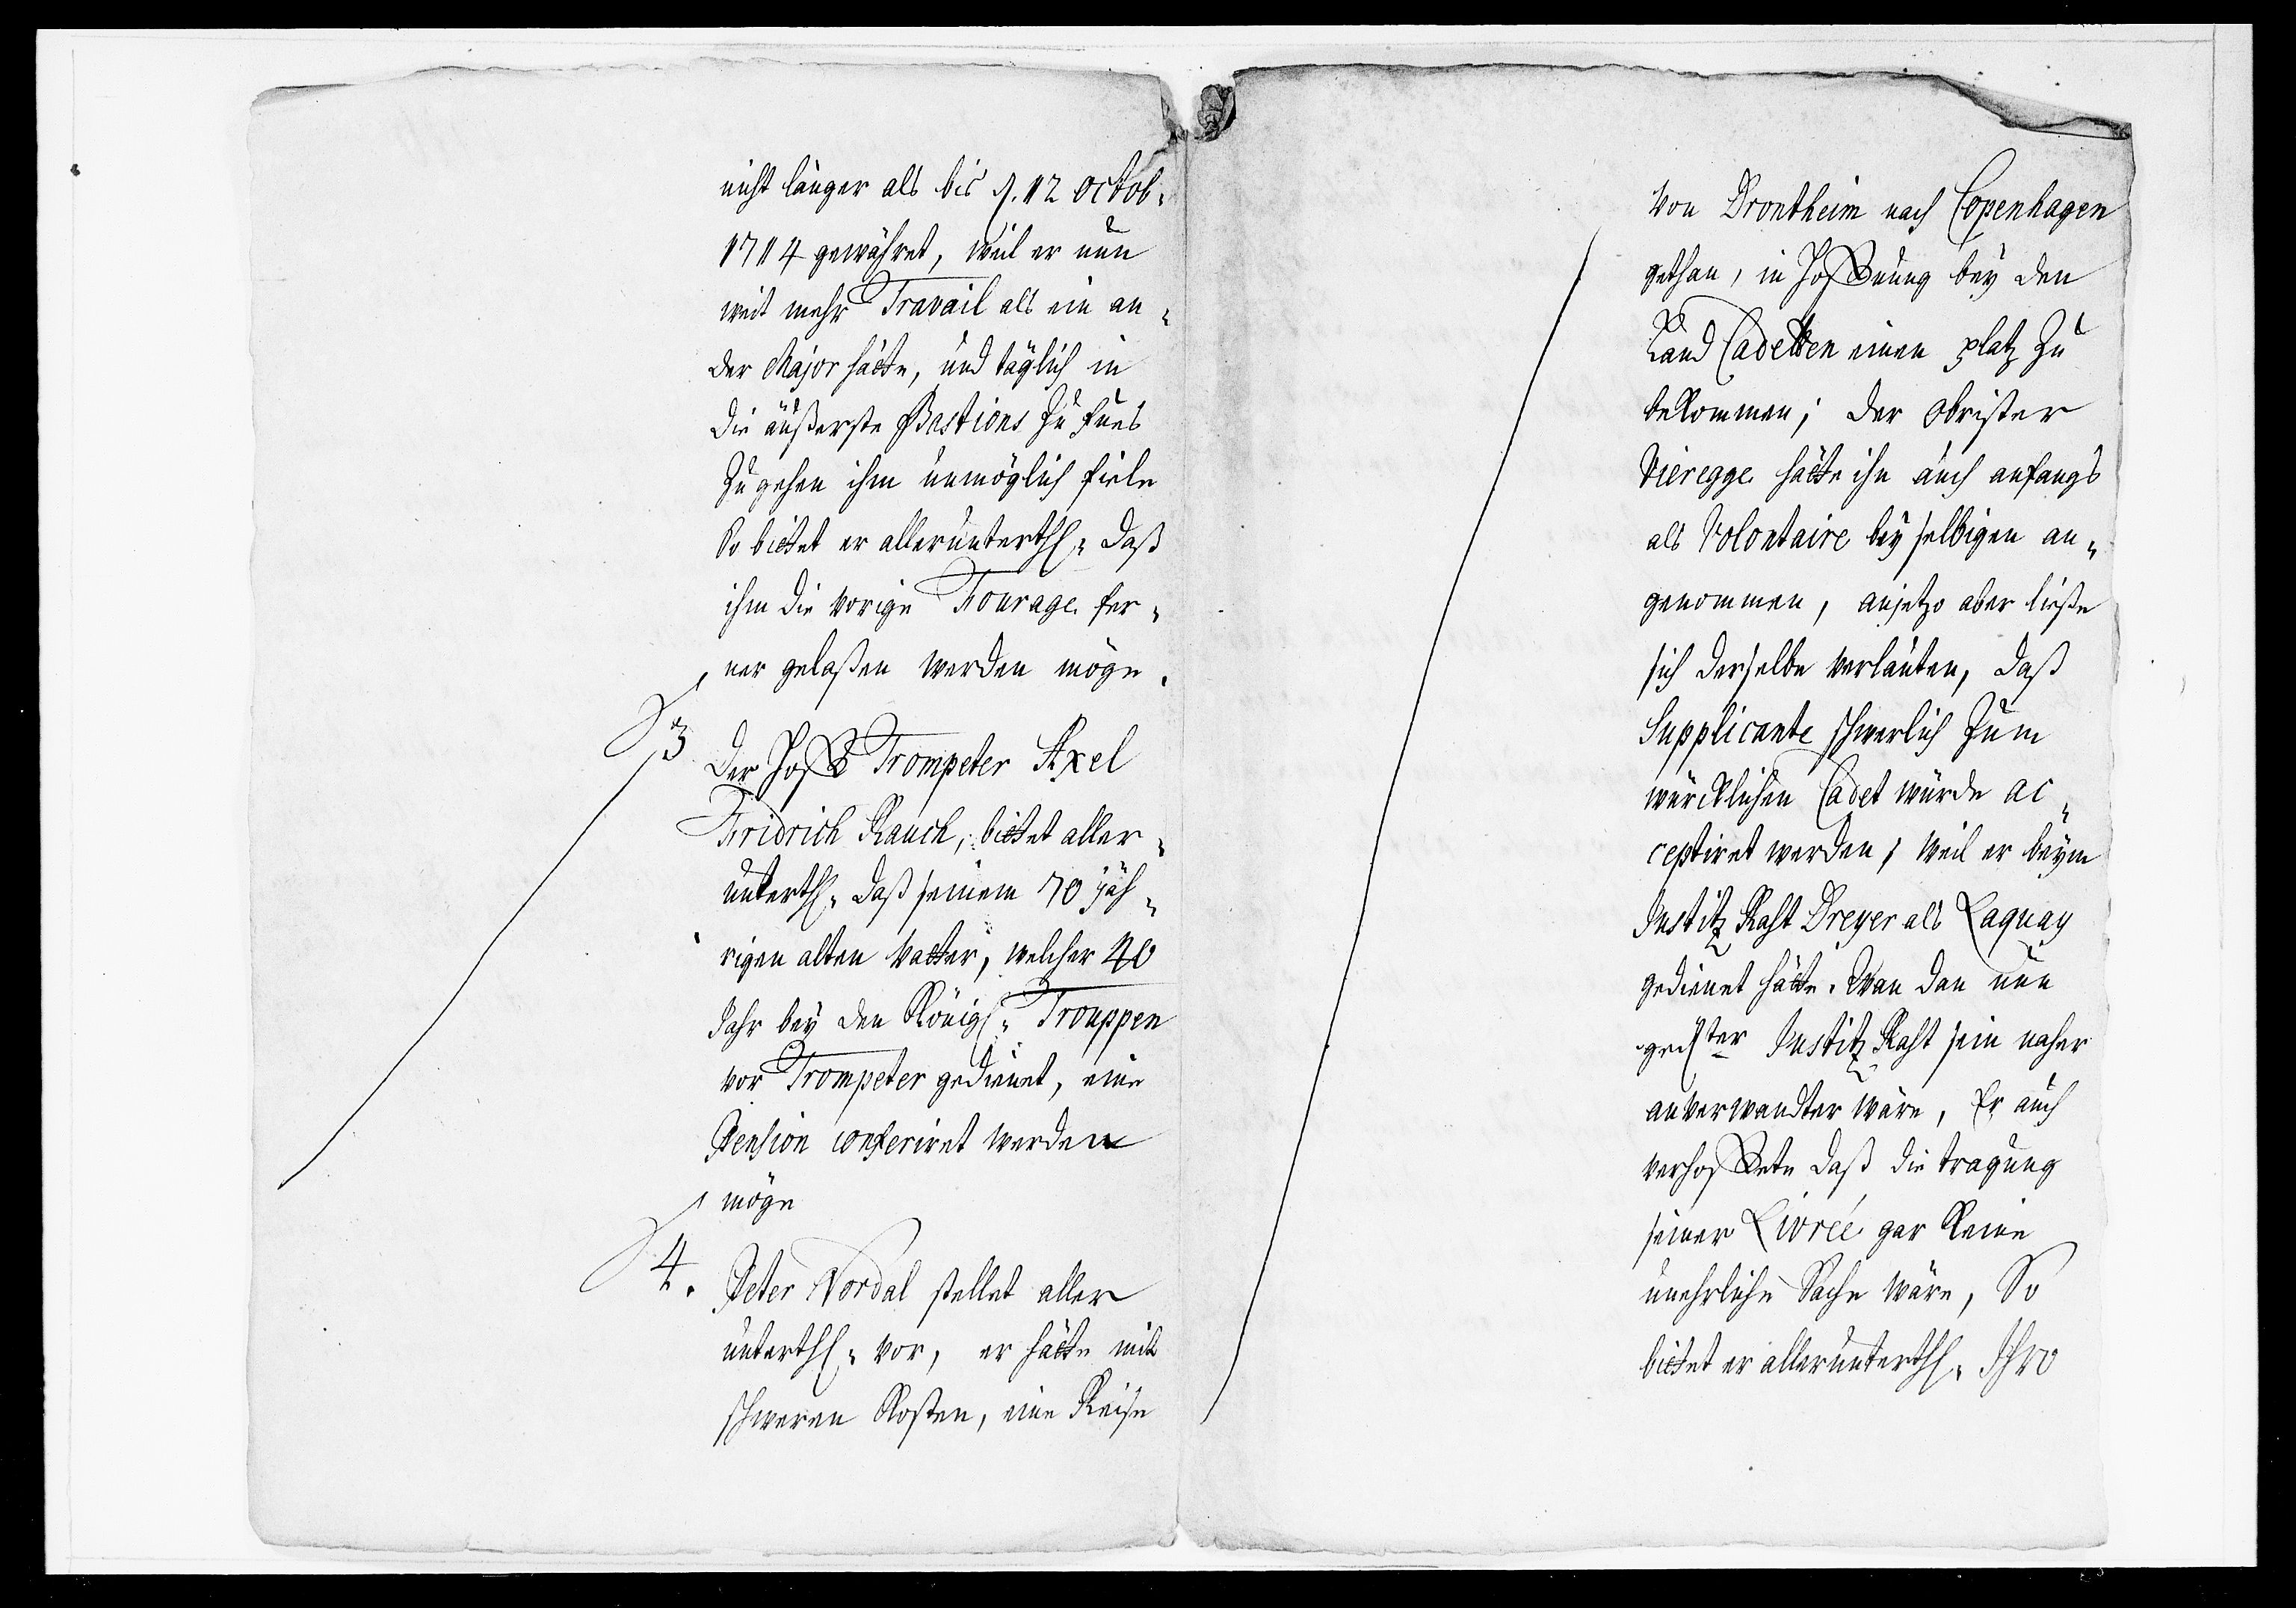 nicht länger als bis d. 12 octob.
1714 gewähret, weil er nun
weit mehr Travail als ein an-
der Major hätte, und täglich in
die äußerste Bastions zu fues
zu gehen ihm unmöglich fiele
So bittet er allerunterth. daß
ihm die vorige Fourage fer-
ner gelaßen werden möge.
3
Der Hoff Trompeter Axel
Fridrich Rauch, bittet aller-
unterth. daß seinem 70 jäh-
rigen alten Vatter, welcher 40
Jahr bey den Königl. Trouppen
vor Trompeter gedienet, eine
Pension conferiret werden
möge
4. Peter Nordal stellet aller
unterth. vor, er hätte mit
schweren Kosten, eine Reise
von Drontheim nach Copenhagen
gethan, in Hoffnung bey den
Land Cadetten einen platz zu
bekommen; der Obrister
Vieregge hätte ihn auch anfangs
als Volontaire bey selbigen an-
genommen, anjetzo aber ließe
sich derselbe verlauten, daß
Supplicante schwerlich zum
würcklichen Cadet würde ac-
ceptiret werden, weil er beym
Justitz Raht Dreyer als Laquay
gedienet hätte. Wan dan nun
gedter Justitz Raht sein naher
anverwandter wäre, Er auch
verhoffete daß die tragung
seiner Livrée gar keine
unehrliche Sache wäre, So
bittet er allerunterth. Ihro